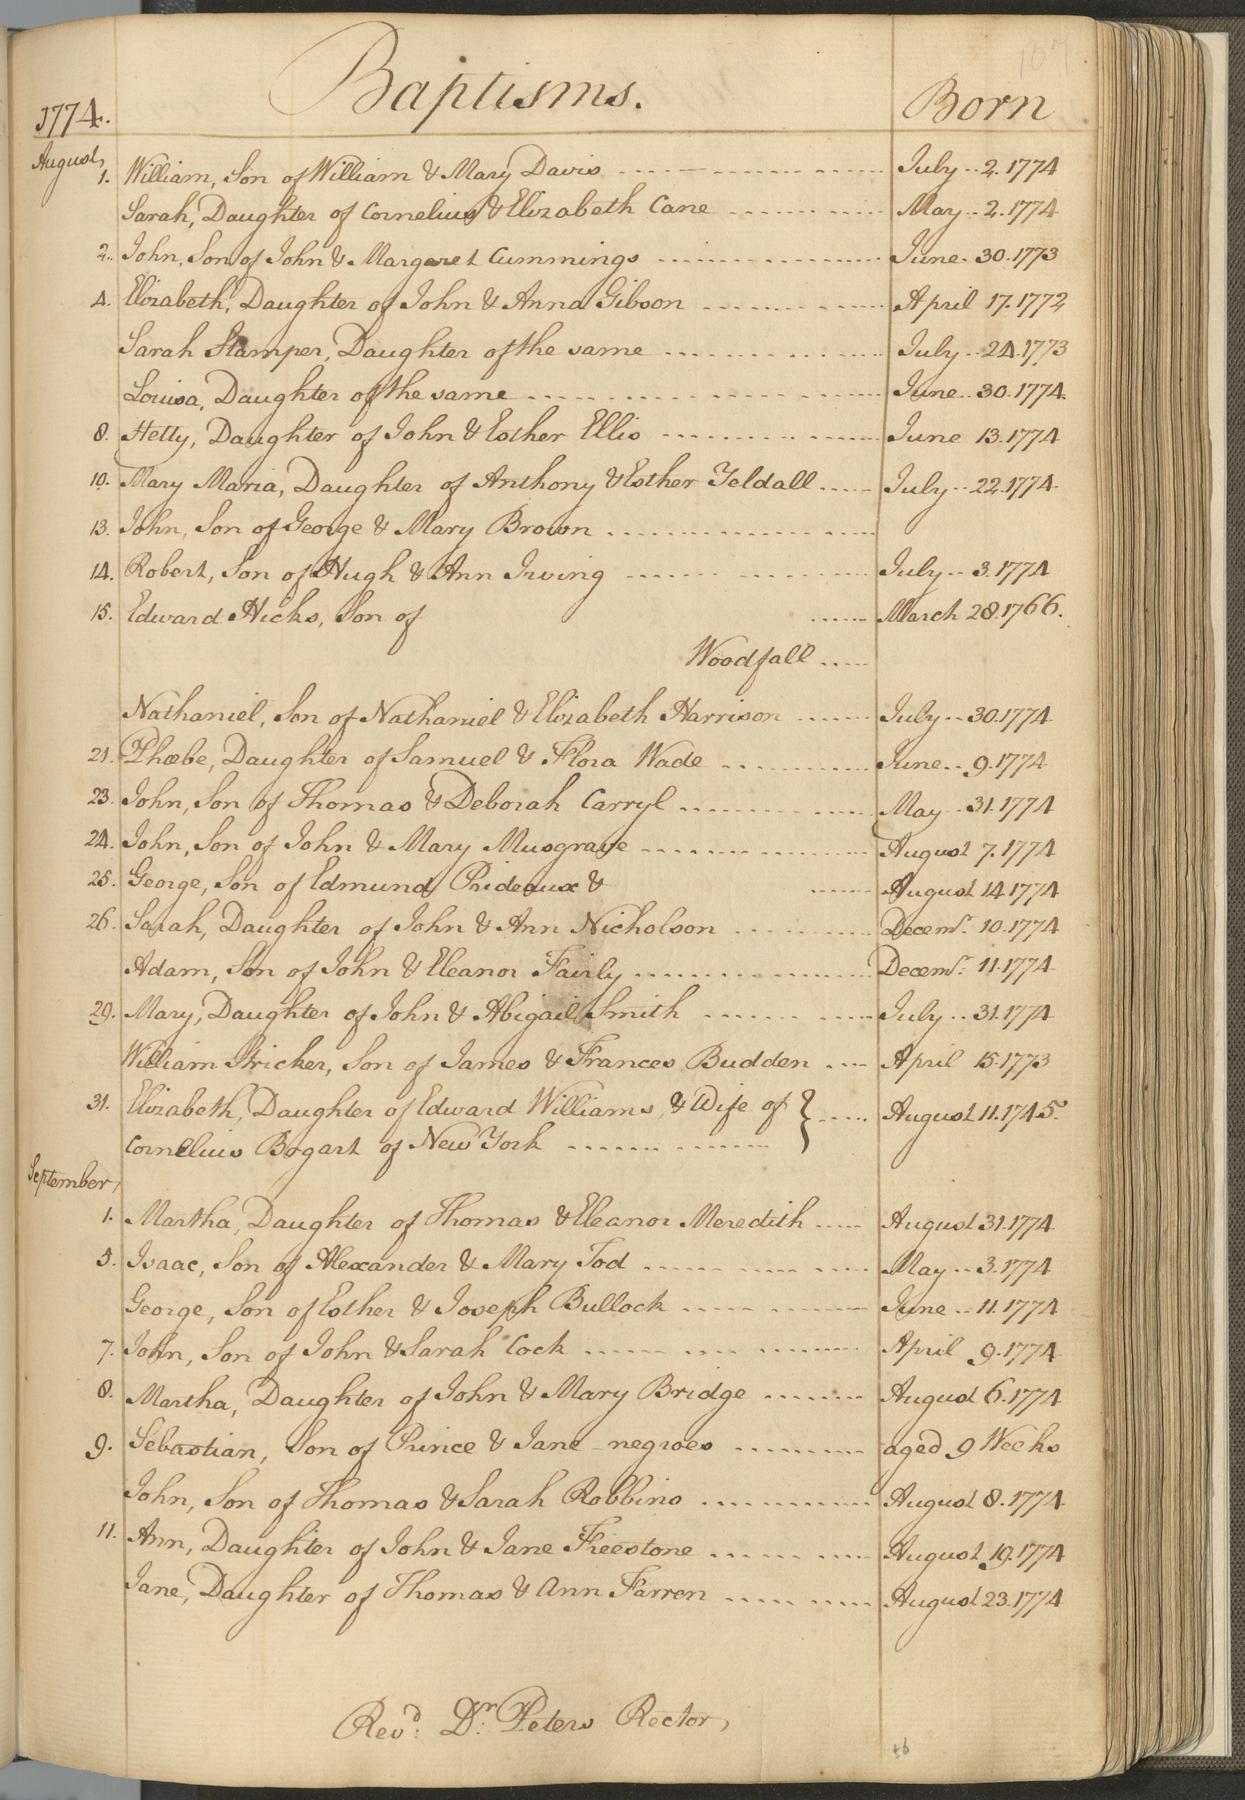 107
1774.
Baptisms.
Born
August,
1. William, Son of William & Mary Davis July 2. 1774
Sarah, Daughter of Cornelius & Elizabeth Cane May 2. 1774
2. John, Son of John & Margaret Cummings June 30. 1773
4. Elizabeth, Daughter of John & Anna Gibson April 17. 1772
Sarah Stamper, Daughter of the same July 24. 1773
Louisa, Daughter of the same June 30. 1774.
8. Hetty, Daughter of John & Esther Ellis June 13. 1774
10. Mary Maria, Daughter of Anthony & Esther Yeldall July 22. 1774
13. John, Son of George & Mary Brown
14. Robert, Son of Hugh & Ann Irving July 3. 1774
15. Edward Hicks, Son of March 28. 1766.
Woodfall
Nathaniel, Son of Nathaniel & Elizabeth Harrison July 30. 1774
21. Phœbe, Daughter of Samuel & Flora Wade June 9. 1774
23. John, Son of Thomas & Deborah Carryl May 31. 1774
24. John, Son of John & Mary Musgrave August 7. 1774
25. George, Son of Edmund Prideaux & August 14. 1774
26. Sarah, Daughter of John & Ann Nicholson Decemr. 10. 1774
Adam, Son of John & Eleanor Fairly Decemr. 11. 1774
29. Mary, Daughter of John & Abigail Smith July 31. 1774
William Stricker, Son of James & Frances Budden April 15. 1773
31. Elizabeth, Daughter of Edward Williams, & Wife of } August 11. 1745.
Cornelius Bogart of New York
September,
1. Martha, Daughter of Thomas & Eleanor Meredith August 31. 1774
5. Isaac, Son of Alexander & Mary Tod May 3. 1774
George, Son of Esther & Joseph Bullock June 11. 1774
7. John, Son of John & Sarah Cock April 9. 1774
8. Martha, Daughter of John & Mary Bridge August 6. 1774
9. Sebastian, Son of Prince & Jane negroes aged 9 Weeks
John, Son of Thomas & Sarah Robbins August 8. 1774
11. Ann, Daughter of John & Jane Freestone August 19. 1774
Jane, Daughter of Thomas & Ann Farren August 23. 1774
Revd. Dr. Peters Rector,